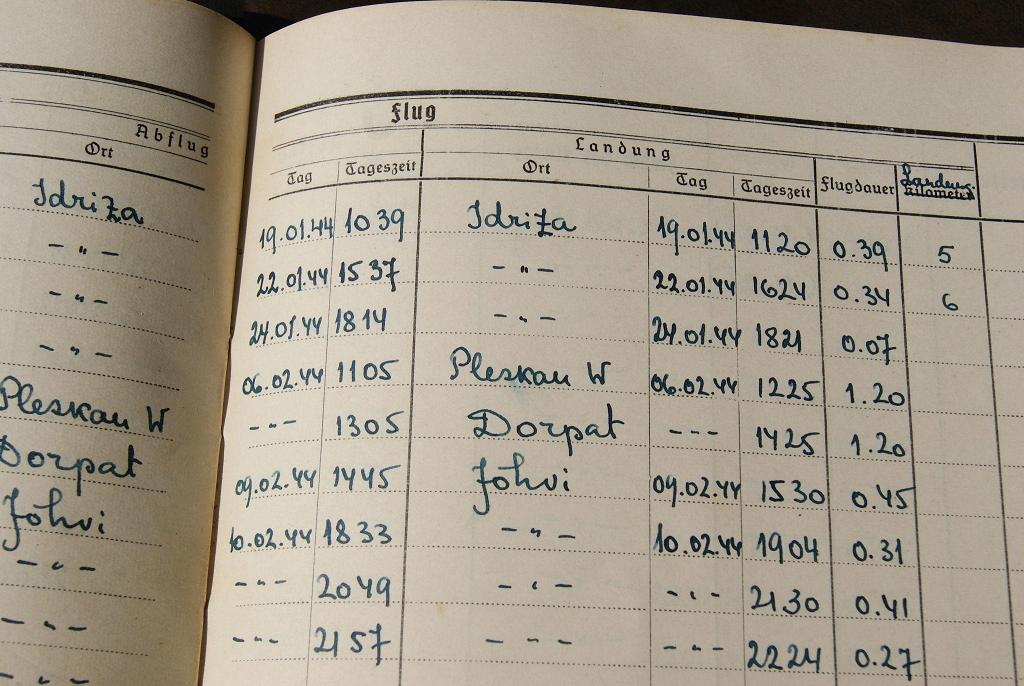 Flug
Abflug
Landung
Ort
Tag Tageszeit Ort Tag Tageszeit Flugdauer Kilometer
Landung.
Idriza 19.01.44 1039 Idriza 19.01.44 1120 0.39 5
- " - 22.01.44 1537 - " - 22.01.44 1624 0.34 6
- " - 24.01.44 1814 - " - 24.01.44 1821 0.07
- " - 06.02.44 1105 Pleskau W 06.02.44 1225 1.20
Pleskau W - " - 1305 Dorpat - - - 1425 1.20
Dorpat 09.02.44 1445 Jöhvi 09.02.44 1530 0.45
Jöhvi 10.02.44 1833 - " - 10.02.44 1904 0.31
- " - - " - 2049 - " - - " - 2130 0.41
- " - - " - 2157 - - - - " - 2224 0.27
- " -